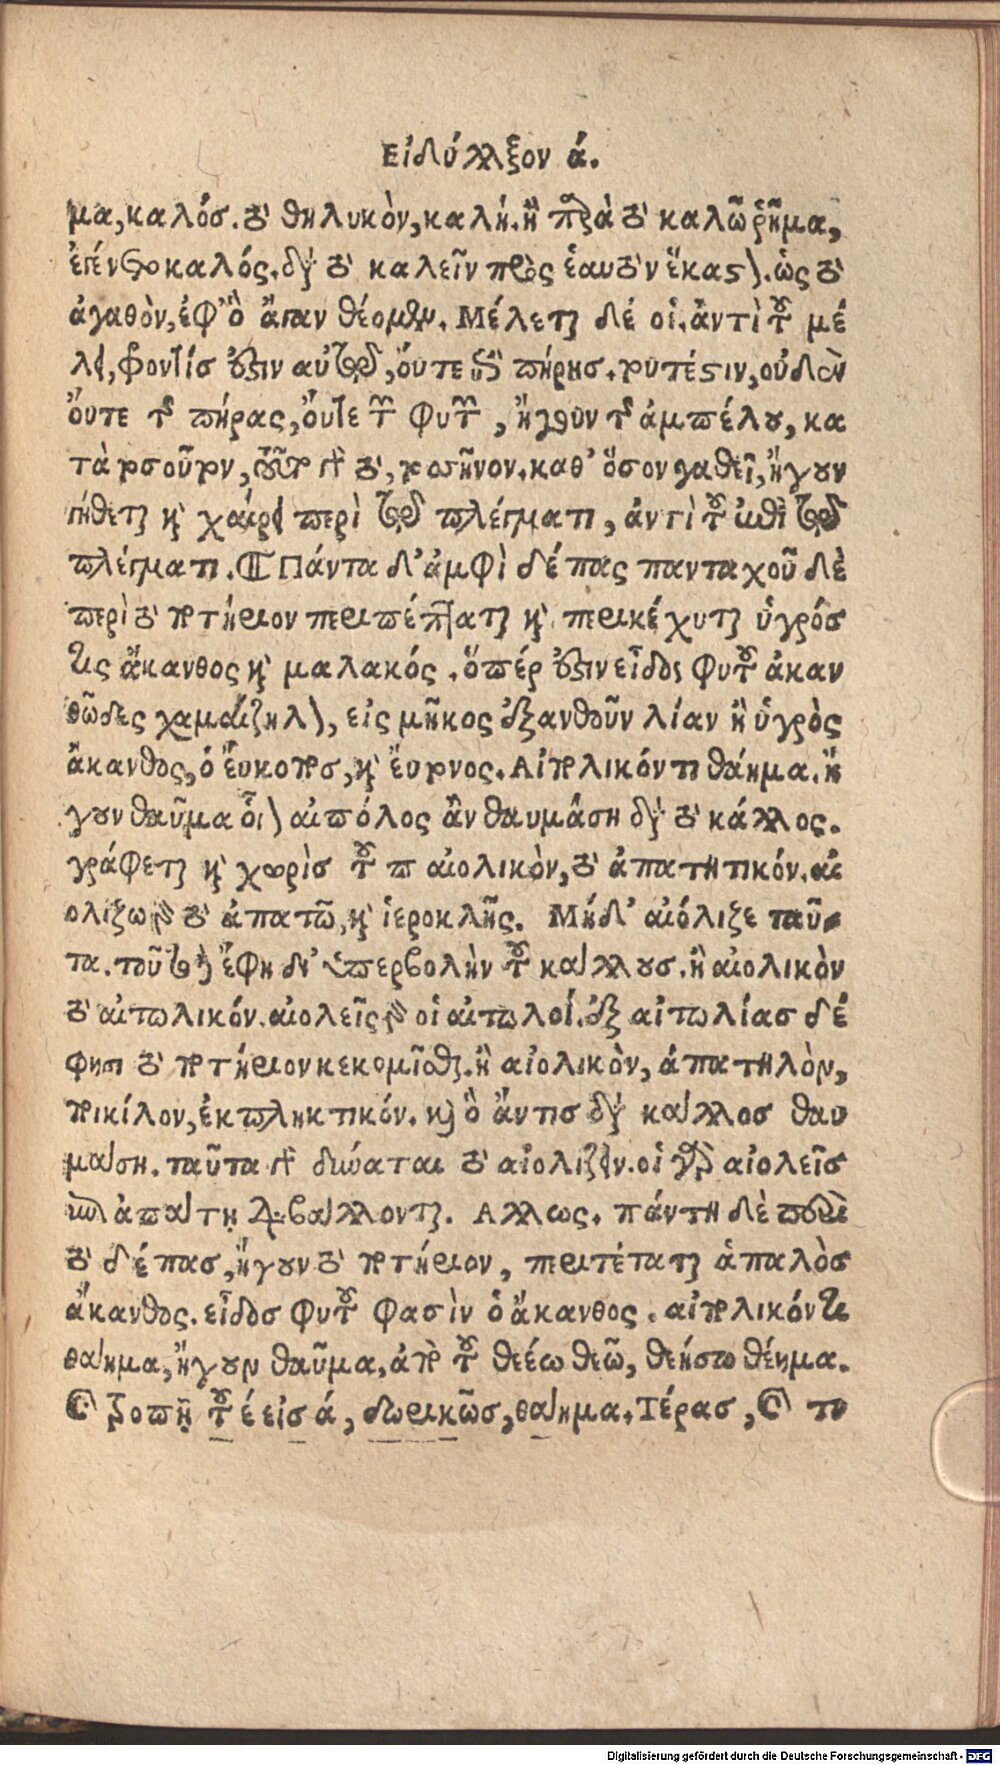 Εἰδύλλιον ά.
μα, καλός. τὸ θηλυκὸν, καλή. ἢ παρὰ τὸ καλῶ ῥῆμα,
ἐγένετο καλός. διὰ τὸ καλεῖν πρὸς ἑαυτὸν ἕκαστον. ὡς τὸ
ἀγαθὸν, ἐφ' ὃ ἄγαν θέομεν. Μέλεται δέ οἱ. ἀντὶ τοῦ μέ
λει, φροντίς ἐστιν αὐτῷ, οὔτε τῆς πήρης. τουτέστιν, οὐδὲν
οὔτε τῆς πήρας, οὔτε τῶν φυτῶν, ἤγουν τῆς ἀμπέλου, κα
τὰ τοσοῦτον, ἀπὸ κοινοῦ τὸ, τοσσῆνον. καθ' ὅσον γαθεῖ, ἤγουν
γήθεται καὶ χαίρει περὶ τῷ πλέγματι, ἀντὶ τοῦ ἐπὶ τῷ
πλέγματι. Πάντα δ' ἀμφὶ δέπας πανταχοῦ δὲ
περὶ τὸ ποτήριον περιπέπταται καὶ περικέχυται ὑγρός
τις ἄκανθος καὶ μαλακός. ὅπέρ ἐστιν εἶδος φυτοῦ ἀκαν
θῶδες χαμαίζηλον, εἰς μῆκος ἐξανθοῦν λίαν ἢ ὑγρὸς
ἄκανθος, ὁ εὔκοπος, καὶ εὔτονος. Αἰπολικόν τι θάημα. ἤ
γουν θαῦμα οἷον αἰπόλος ἂν θαυμάσῃ διὰ τὸ κάλλος.
γράφεται καὶ χωρὶς τοῦ π αἰολικὸν, τὸ ἀπατητικόν. αἰ
ολίζω γὰρ τὸ ἀπατῶ, καὶ ἱεροκλῆς. Μήδ' αἰόλιζε ταῦ-
τα. τοῦτο δὲ ἔφη δι' ὑπερβολὴν τοῦ κάλλους. ἢ αἰολικὸν
τὸ αἰτωλικόν. αἰολεῖς γὰρ οἱ αἰτωλοί. ἐξ αἰτωλίας δέ
φησι τὸ ποτήριον κεκομίσθαι. ἢ αἰολικὸν, ἀπατηλὸν,
ποικίλον, ἐκπληκτικόν. καὶ ὃ ἄν τις διὰ κάλλος θαυ
μάσῃ. ταῦτα γὰρ δύναται τὸ αἰολίζειν. οἱ γὰρ αἰολεῖς
ἐπὶ ἀπάτῃ διαβάλλονται. Αλλως. πάντη δὲ περὶ
τὸ δέπας, ἤγουν τὸ ποτήριον, περιτέταται ἁπαλὸς
ἄκανθος. εἶδος φυτοῦ φασὶν ὁ ἄκανθος. αἰπολικόν τι
θάημα, ἤγουν θαῦμα, ἀπὸ τοῦ θεέω θεῶ, θεήσω θέημα.
καὶ τροπῇ τοῦ έ εἰς ά, δωρικῶς, θάημα. Τέρας, καὶ το